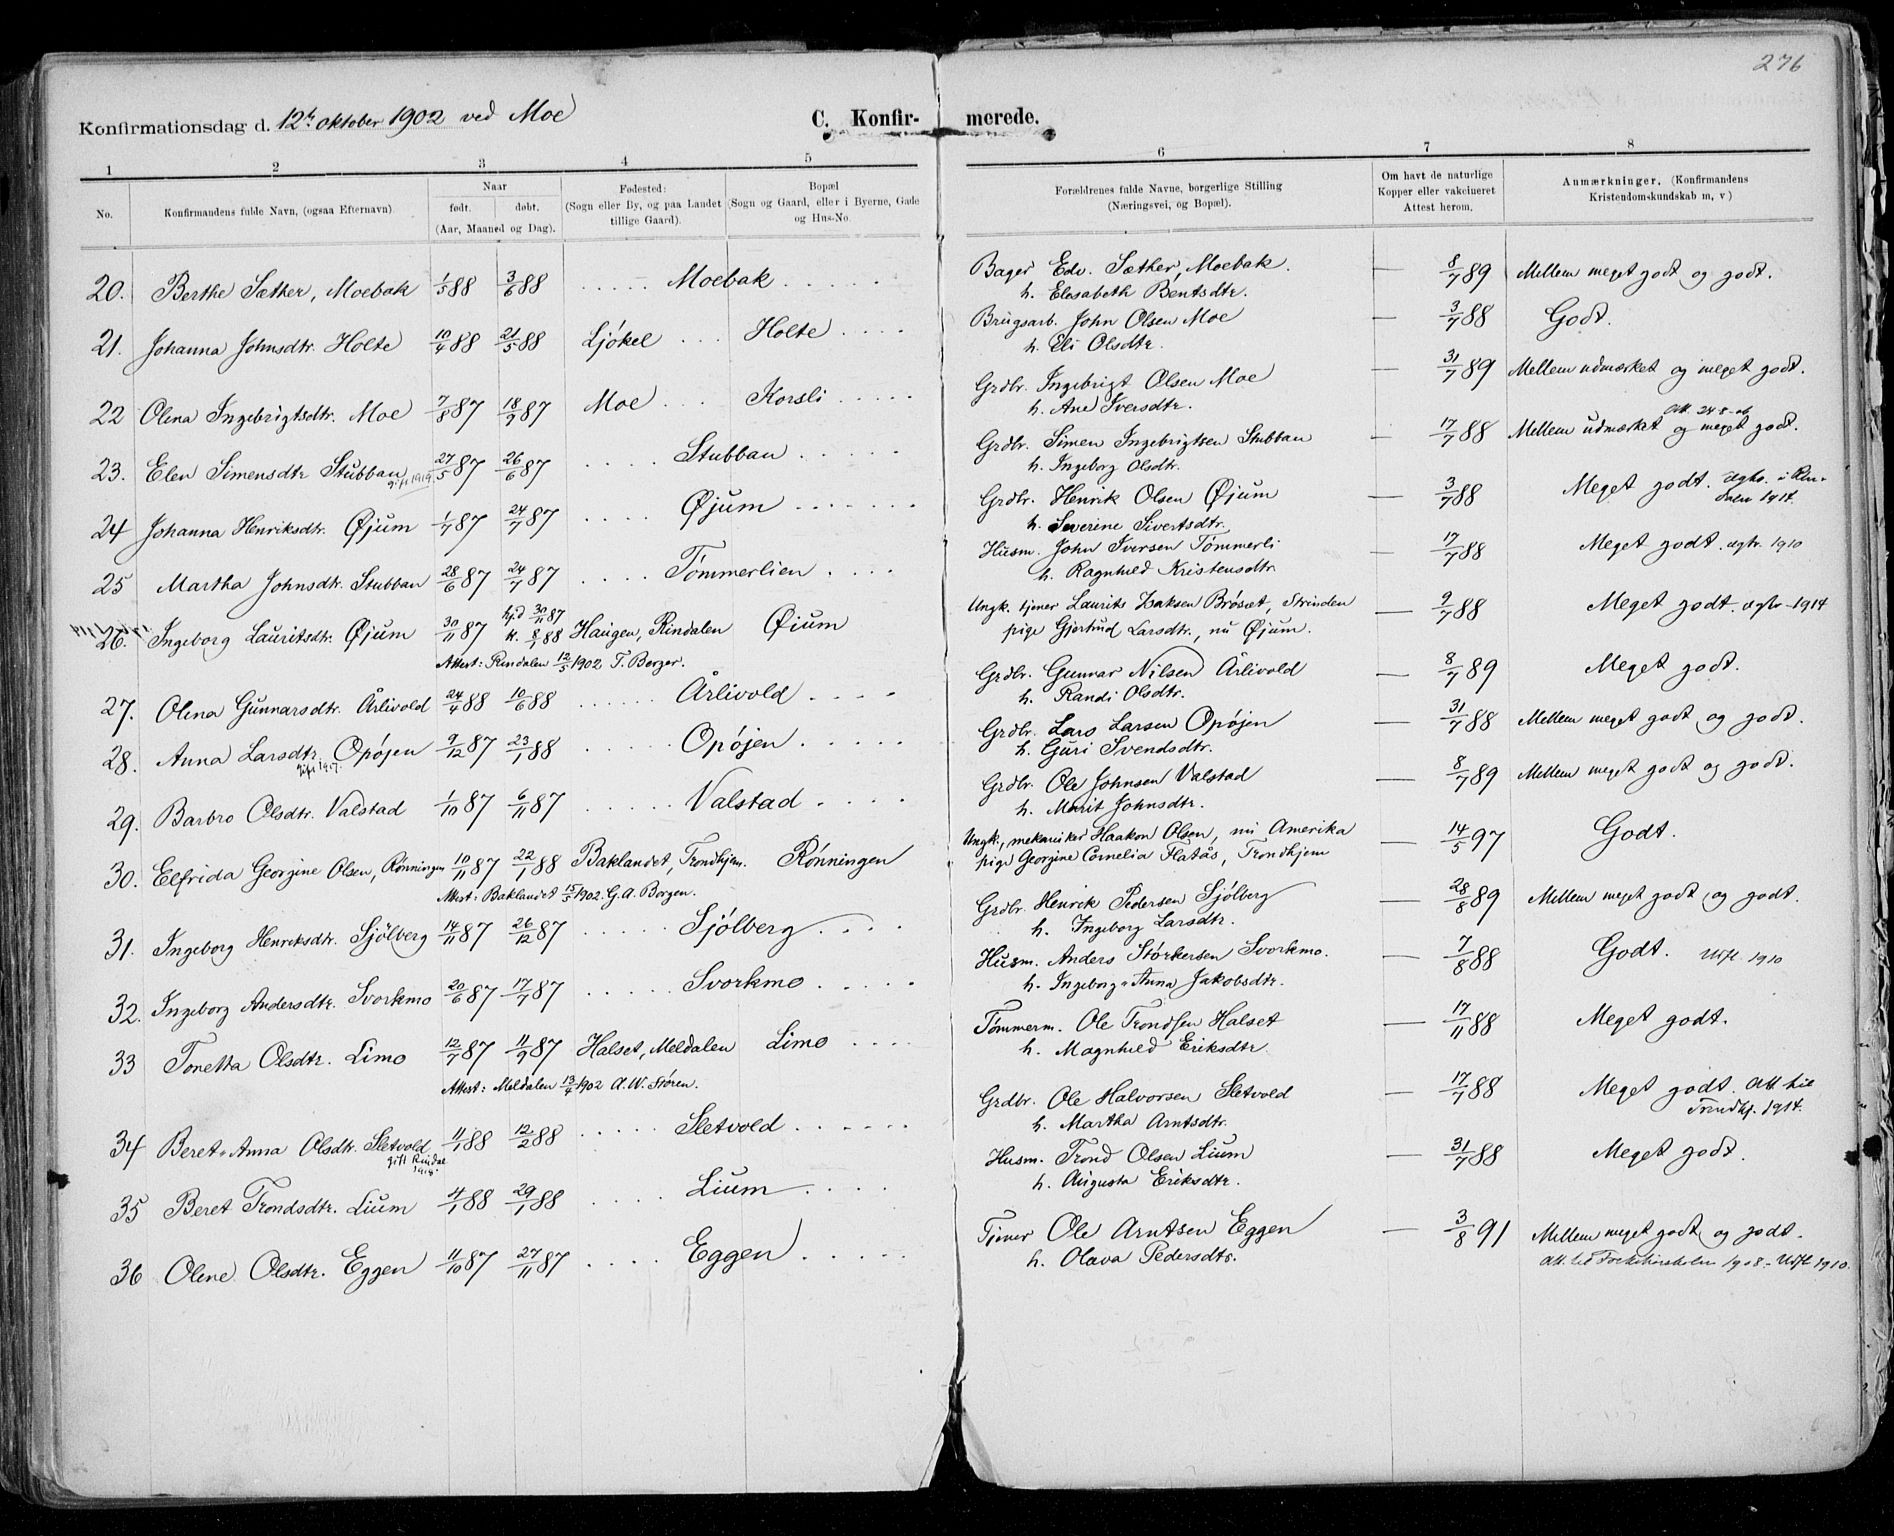 276
Konfirmationsdag d. 12te oktober 1902 ved Moe
C. Konfir- merede.
1 2 3 4 5 6 7 8
No. Konfirmandens fulde Navn, (ogsaa Efternavn) Naar født. døbt. (Aar, Maaned og Dag). Fødested: (Sogn eller By, og paa Landet tillige Gaard). Bopæl (Sogn og Gaard, eller i Byerne, Gade og Hus-No. Forældrenes fulde Navne, borgerlige Stilling (Næringsvei, og Bopæl). Om havt de naturlige Kopper eller vakcineret Attest herom. Anmærkninger, (Konfirmandens Kristendomskundskab m, v)
20. Berthe Sæther, Moebak 1/5 88 3/6 88 ..... Moebak ..... Bager Edv. Sæther, Moebak. — 8/7 89 Mellem meget godt og godt.
h. Elesabeth Bentsdtr.
21. Johanna Johnsdtr. Holte 10/4 88 21/5 88 Ljøkel ... Holte .... Brugsarb. John Olsen Moe — 3/7 88 Godt.
h. Eli Olsdtr.
22 Olina Ingebrigtsdtr. Moe 7/8 87 18/9 87 Moe ... Korsli ..... Grdbr. Ingebrigt Olsen Moe — 31/7 89 Mellem udmærket og meget godt.
h. Ane Iversdtr.
23. Elen Simensdtr Stubban 27/5 87 26/6 87 .... Stubban ..... Grdbr. Simen Ingebrigtsen Stubban — 17/7 88 Mellem udmærket og meget godt.
gift 1919
h. Ingeborg Olsdtr.
24 Johanna Henriksdtr. Øjum 1/7 87 24/7 87 .... Øjum ...... Grdbr. Henrik Olsen Øjum — 3/7 88 Meget godt. ægtev. i Rin-
dalen 1914.
h. Severine Sivertsdtr.
25 Martha Johnsdtr. Stubban 28/6 87 24/7 87 .... Tømmerlien .... Husm. John Iversen Tømmerli — 17/7 88 Meget godt. ægtv. 1910
h. Ragnhild Kristensdtr
26. Ingeborg Lauritsdtr. Øjum 30/11 87 hjd 30/11 87 k. 8/1 88 Haugen, Rindalen Øium Ungk. tjener Laurits Isaksen Brøsæt, Strinden — 9/7 88 Meget godt. ægtv 1914
pige Gjertrud Larsdtr., nu Øjum.
Attest: Rindalen 12/5 1902 T. Berger.
27. Olina Gunnarsdtr. Årlivold 24/4 88 10/6 88 ...... Årlivold .... Grdbr. Gunnar Nilsen Årlivold — 8/7 89 Meget godt.
h. Randi Olsdtr.
28. Anna Larsdtr. Opøjen 9/12 87 23/1 88 ...... Opøjen ..... Grdbr. Lars Larsen Opøjen — 31/7 88 Mellem meget godt og godt.
gift 1917.
h. Guri Svendsdtr.
29. Barbro Olsdtr. Valstad 1/10 87 6/11 87 ..... Valstad .... Grdbr. Ole Johnsen Valstad — 8/7 89 Mellem meget godt og godt.
h. Marit Johnsdtr.
30. Elfrida Georgine Olsen, Rønningen 10/11 87 22/1 88 Baklandet, Trondhjem. Rønningen Ungk., mekaniker Haakon Olsen, nu Amerika — 14/5 97 Godt.
pige Georgine Cornelia Flatås, Trondhjem
Attest: Baklandet 15/5 1902. G.A. Borgen.
31. Ingeborg Henriksdtr. Sjølberg 14/11 87 26/12 87 ..... Sjølberg .... Grdbr. Henrik Pedersen Sjølberg — 28/8 89 Mellem meget godt og godt.
h. Ingeborg Larsdtr.
32. Ingeborg Andersdtr. Svorkmo 20/6 87 17/7 87 ..... Svorkmo ..... Husm. Anders Størkersen Svorkmo. — 7/8 88 Godt. Utfl. 1910
h. Ingeborg-Anna Jakobsdtr.
33 Tonetta Olsdtr. Limo 12/7 87 11/9 87 Halset, Meldalen Limo .... Tømmerm. Ole Trondsen Halset — 17/11 88 Meget godt.
h. Magnhild Eriksdtr.
Attest: Meldalen 13/4 1902 A.W. Støren.
34 Beret-Anna Olsdtr. Sletvold 11/1 88 12/2 88 ..... Sletvold ...... Grdbr. Ole Halvorsen Sletvold — 17/7 88 Meget godt. Att. til
Trondhj. 1914.
gift Rindal
h. Martha Arntsdtr.
35 Beret Trondsdtr. Lium 4/1 88 29/1 88 .... Lium .... Husm. Trond Olsen Lium — 31/7 88 Meget godt.
h. Augusta Eriksdtr.
36 Oline Olsdtr. Eggen 11/10 87 27/11 87 .... Eggen ..... Tjener Ole Arntsen Eggen — 3/8 91 Mellem meget godt og godt.
h. Olava Pedersdtr. 1908.- Utfl. 1910.